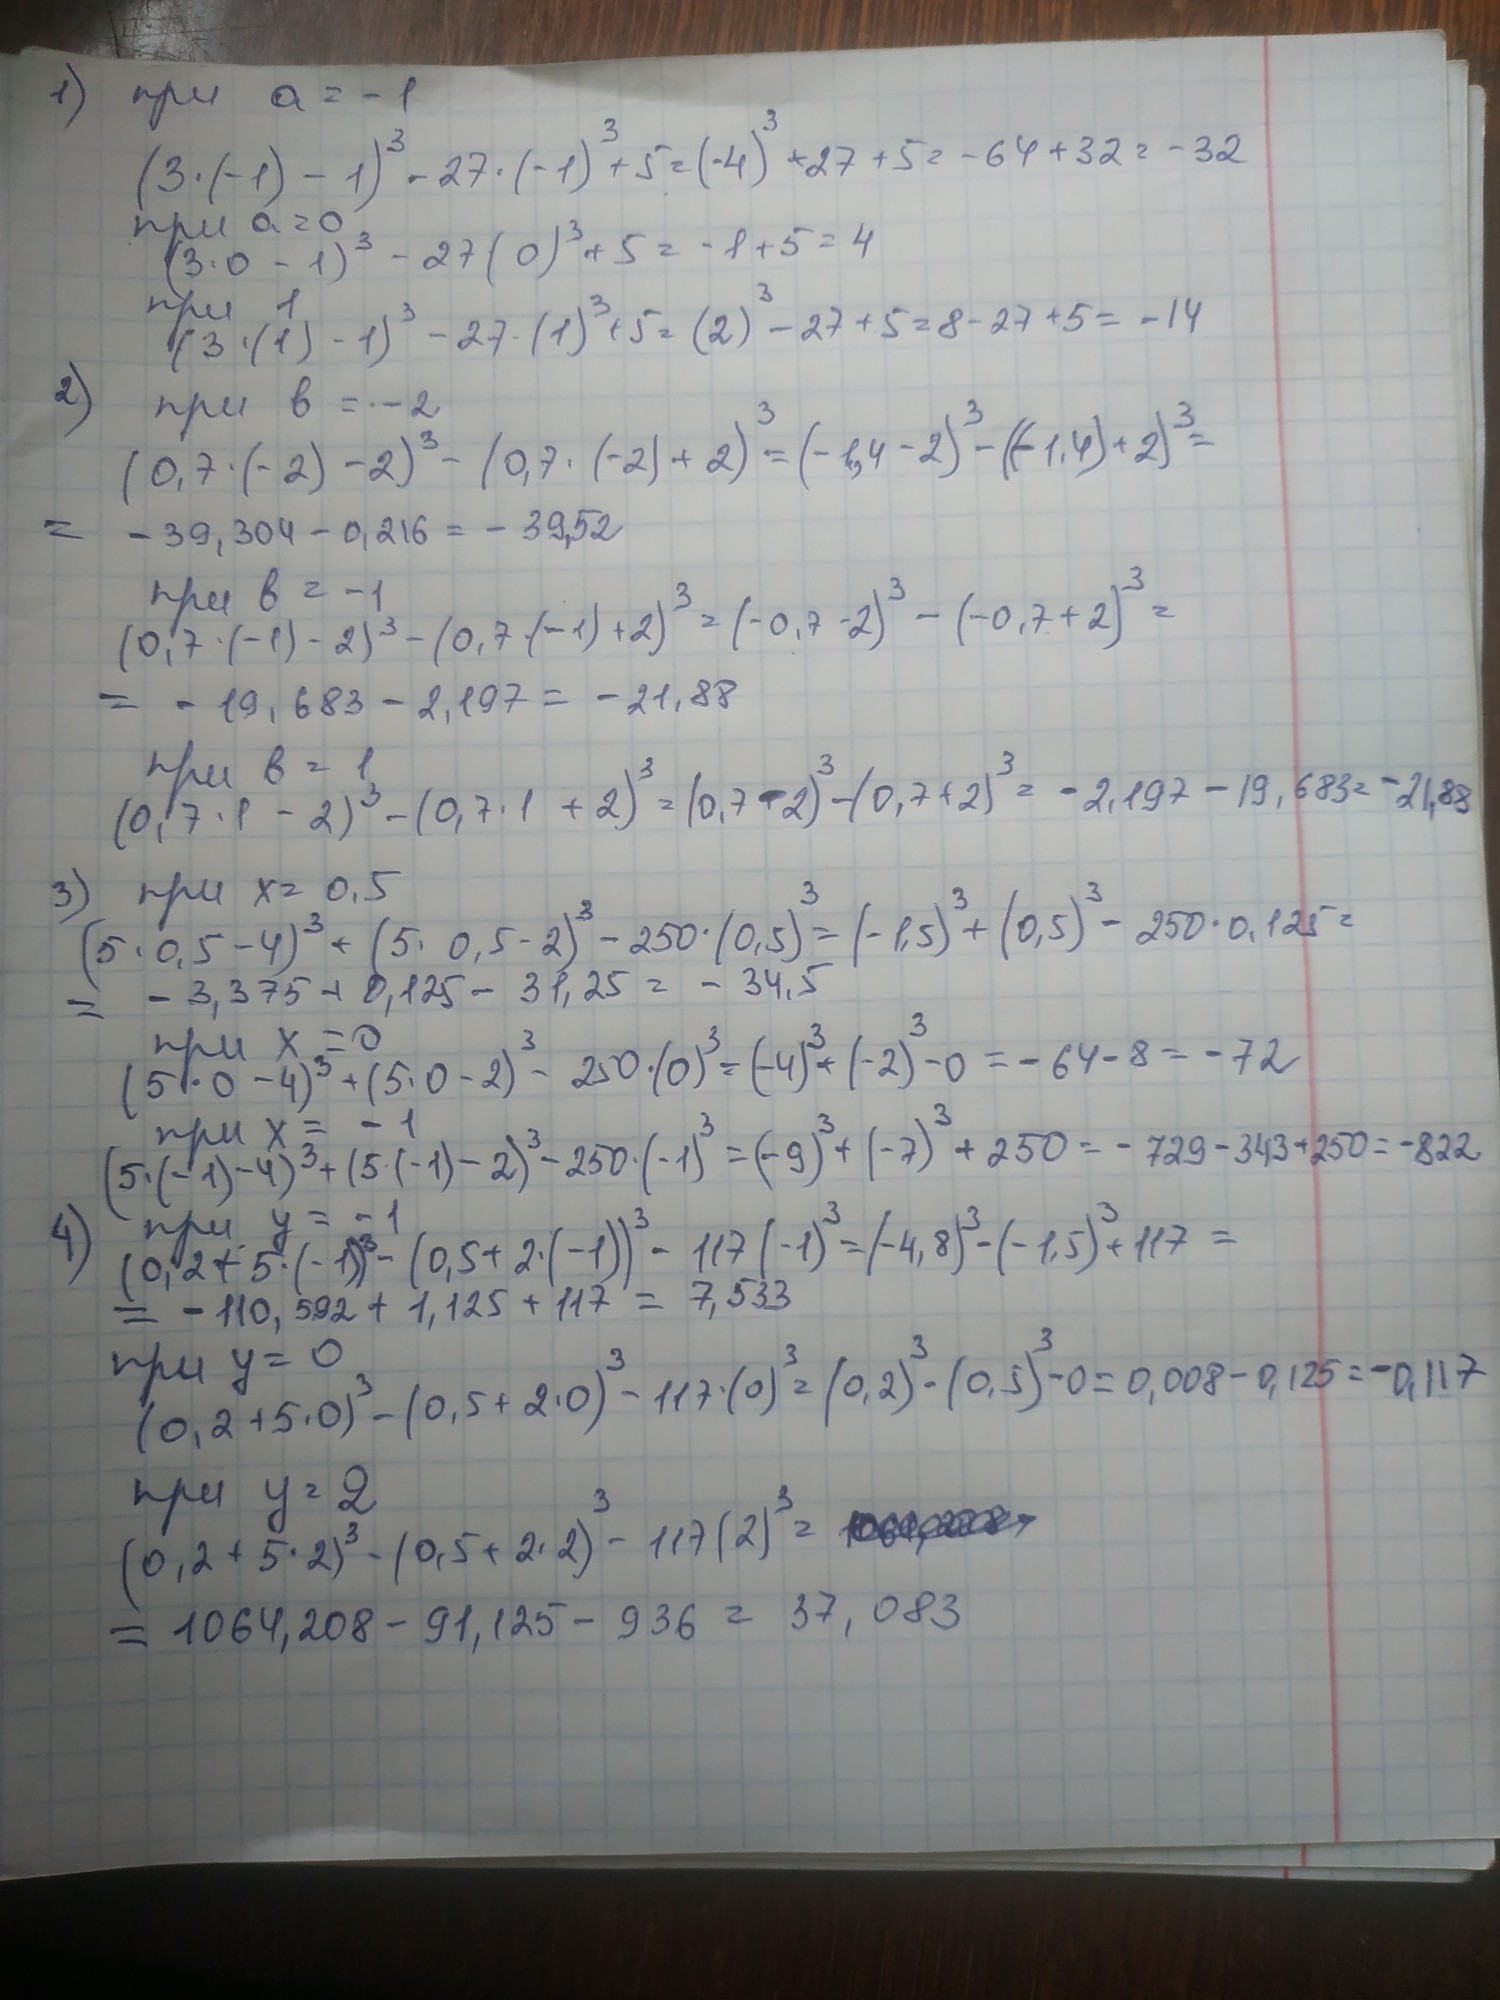 1) при a = -1
(3·(-1) - 1)³ - 27·(-1)³ + 5 = (-4)³ + 27 + 5 = -64 + 32 = -32
при a = 0
(3·0 - 1)³ - 27(0)³ + 5 = -1 + 5 = 4
при 1
(3·(1) - 1)³ - 27·(1)³ + 5 = (2)³ - 27 + 5 = 8 - 27 + 5 = -14
2) при в = -2
(0,7·(-2) - 2)³ - (0,7·(-2) + 2)³ = (-1,4 - 2)³ - ((-1,4) + 2)³ =
= -39,304 - 0,216 = -39,52
при в = -1
(0,7·(-1) - 2)³ - (0,7·(-1) + 2)³ = (-0,7 - 2)³ - (-0,7 + 2)³ =
= -19,683 - 2,197 = -21,88
при в = 1
(0,7·1 - 2)³ - (0,7·1 + 2)³ = (0,7 - 2)³ - (0,7 + 2)³ = -2,197 - 19,683 = -21,88
3) при x = 0,5
(5·0,5 - 4)³ + (5·0,5 - 2)³ - 250·(0,5)³ = (-1,5)³ + (0,5)³ - 250·0,125 =
= -3,375 + 0,125 - 31,25 = -34,5
при x = 0
(5·0 - 4)³ + (5·0 - 2)³ - 250·(0)³ = (-4)³ + (-2)³ - 0 = -64 - 8 = -72
при x = -1
(5·(-1) - 4)³ + (5·(-1) - 2)³ - 250·(-1)³ = (-9)³ + (-7)³ + 250 = -729 - 343 + 250 = -822
4) при y = -1
(0,2 + 5·(-1))³ - (0,5 + 2·(-1))³ - 117(-1)³ = (-4,8)³ - (-1,5)³ + 117 =
= -110,592 + 1,125 + 117 = 7,533
при y = 0
(0,2 + 5·0)³ - (0,5 + 2·0)³ - 117·(0)³ = (0,2)³ - (0,5)³ - 0 = 0,008 - 0,125 = -0,117
при y = 2
(0,2 + 5·2)³ - (0,5 + 2·2)³ - 117(2)³ =
= 1064,208 - 91,125 - 936 = 37,083